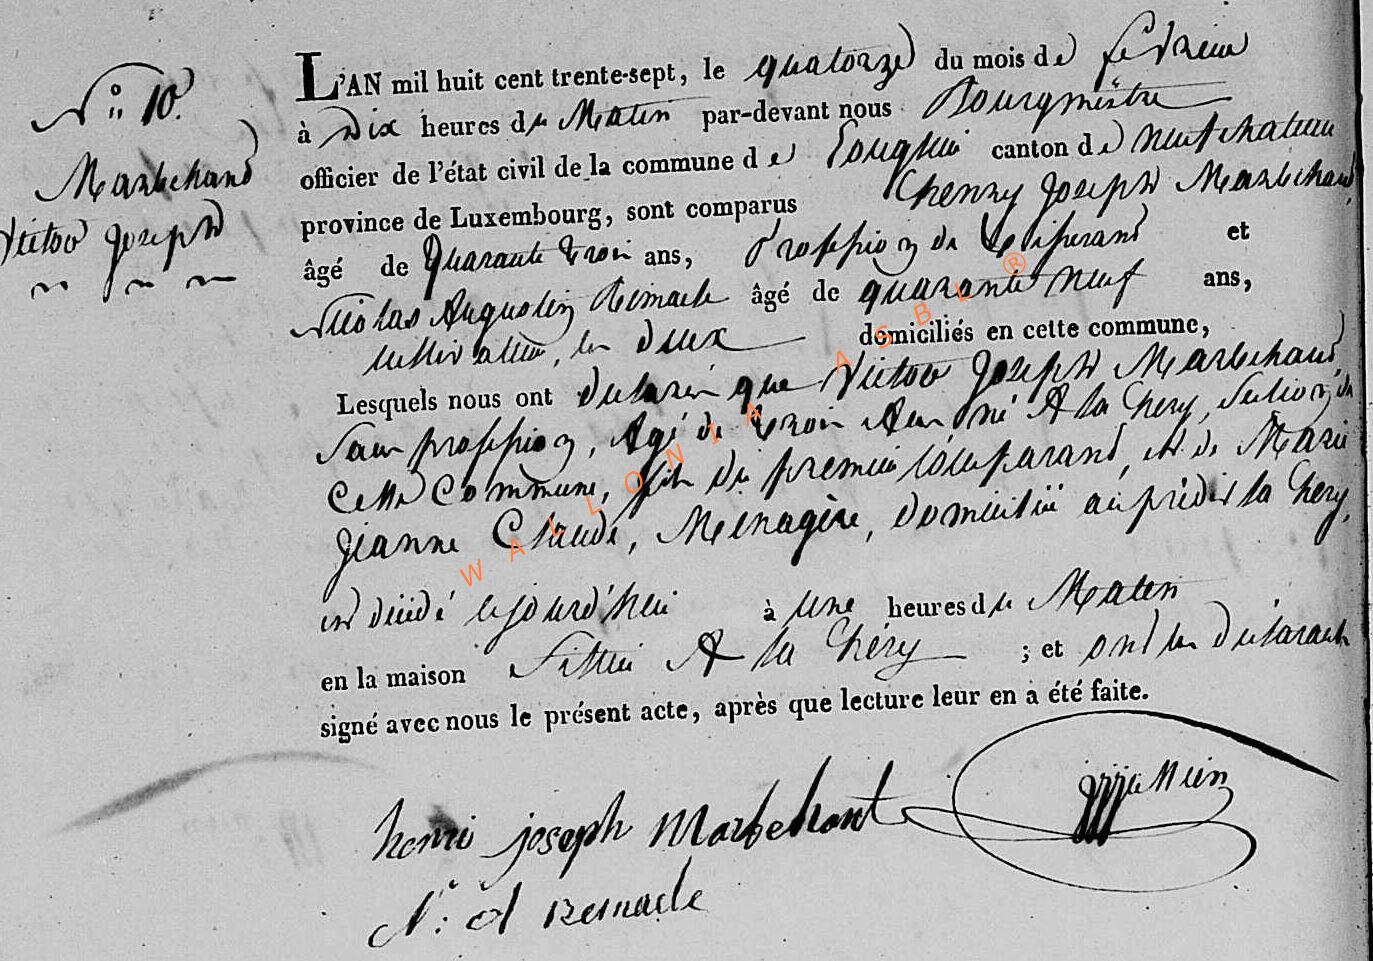 N° 10.
Marbehand
Victor Joseph
L'AN mil huit cent trente-sept, le quatorze du mois de fevrier
à Dix heures du Matin par-devant nous Bourgmestre
officier de l'état civil de la commune de canton de neufchateau
province de Luxembourg, sont comparus henry Joseph Marbehand,
âgé de Quarante trois ans, Proffion de et
Nicolas Augustin Remacle âgé de quarante neuf ans,
cultivateur, les deux domiciliés en cette commune,
Lesquels nous ont declarés que Victor Joseph Marbehand
Sans proffion, Agé de trois Ans né A la hery, Section de
Cette Commune, fils du premier Comparand, et de Marie
Jeanne Claude, Menagère, domicilié au prédit la hery,
est décédé à une heures du Matin
en la maison Sittué A la héry ; et ont les déclarants
signé avec nous le présent acte, après que lecture leur en a été faite.
henri joseph Marbehant
N: A Remacle
WALLONIA ASBL ®